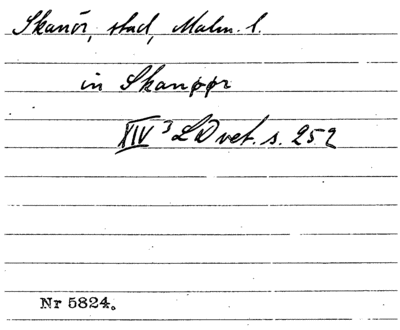 Skanör, stad, Malm. l.
in Skanøør
XIV³ LD vet. s. 252
Nr 5824.